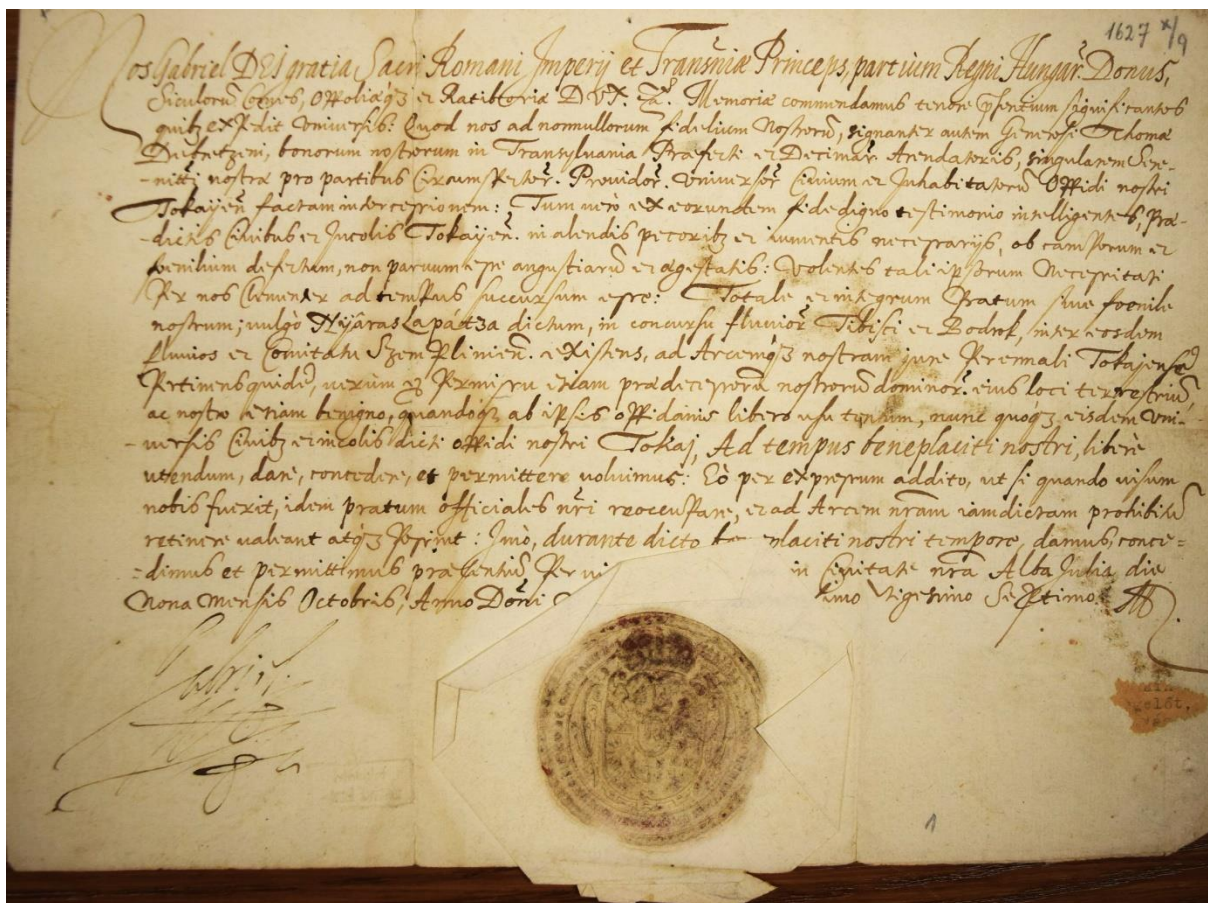 1627 X/9
Nos Gabriel DEI gratia Sacri Romani Imperij et Transniæ Princeps, partium Regni Hungar. Donus,
Siculorū Comes, Oppoliæqꝫ et Ratiboriæ DUX. Memoriæ commendamus tenore pñtium significantes
quibꝫ expedit Universis: Quod nos ad nonnullorum fidelium Nostrorū, signanter autem Generosi Thomæ
Debretzeni, bonorum nostrorum in Transylvania Præfecti et Decimar. Arendatoris, singularem Sere-
-nitti nostræ pro partibus Circumspector. Providor. Universor. Civium et Inhabitatorū Oppidi nostri
Tokajen factam intercessionem: Tum vero ex eorundem fide digno testimonio intelligentes, Præ-
-dictis Civibus et Incolis Tokajen. in alendis pecoribꝫ et iumentis necessarijs, ob camporum et
foenilium defectum, non parvum esse angustiarū et ægestatis: Volentes tali ipsorum Necessitati
Per nos Clementer ad tempus succursum esse: Totale et integrum Pratum sive foenile
nostrum; vulgò Nyáras Lapátza dictum, in concursu fluvior. Tibisci et Bodrok, inter eosdem
fluvios et Comitatu Szempliniēn. existens, ad Arcemqꝫ nostram jure Perennali Tokajensē
Pertinens quidē, verùm ex Permissu etiam prædecessorū nostrorū dominor. eius loci terrestriū,
ac nostro etiam benigno, quandoqꝫ ab ipsis oppidanis libero usu tentum, nunc quoqꝫ eisdem Uni-
-versis Civibꝫ et incolis dicti oppidi nostri Tokaj, Ad tempus beneplaciti nostri, liberè
utendum, dare, concedere, et permittere voluimus: Eò per expressum addito, ut si quando visum
nobis fuerit, idem pratum officiales nri reoccupare, et ad Arcem nram iamdictam prohibitū
retinere valeant atqꝫ possint: Imò, durante dicto be placiti nostri tempore, damus, conce=
=dimus et permittimus præsentiū Per vi in Civitate nra Alba Julia die
Nona mensis Octobris, Anno Dōni imo Vigesimo Septimo.
Gabriel
1